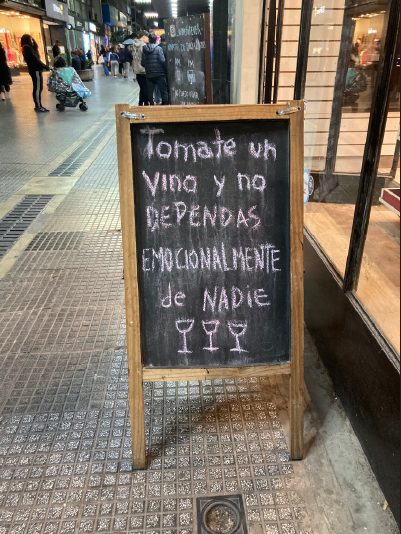 Tomate un
Vino y no
DEPENDAS
EMOCIONALMENTE
de NADIE